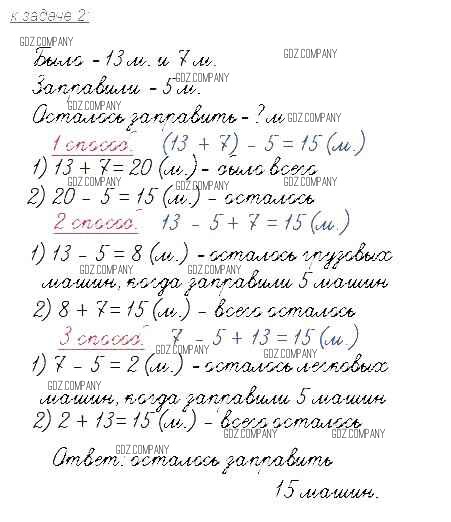 к задаче 2:
GDZ.COMPANY
Было - 13 м. и 7 м. GDZ.COMPANY
Заправили - 5 м. GDZ.COMPANY
GDZ.COMPANY
Осталось заправить - ? м GDZ.COMPANY
1 способ. (13 + 7) - 5 = 15 (м.)
1) 13 + 7 = 20 (м.) - было всего
GDZ.COMPANY GDZ.COMPANY GDZ.COMPANY
2) 20 - 5 = 15 (м.) - осталось
2 способ. 13 - 5 + 7 = 15 (м.)
1) 13 - 5 = 8 (м.) - осталось грузовых
GDZ.COMPANY GDZ.COMPANY
машин, когда заправили 5 машин
2) 8 + 7 = 15 (м.) - всего осталось
3 способ. 7 - 5 + 13 = 15 (м.)
GDZ.COMPANY GDZ.COMPANY
1) 7 - 5 = 2 (м.) - осталось легковых
GDZ.COMPANY
машин, когда заправили 5 машин
2) 2 + 13 = 15 (м.) - всего осталось
GDZ.COMPANY GDZ.COMPANY
GDZ.COMPANY
Ответ: осталось заправить
15 машин.